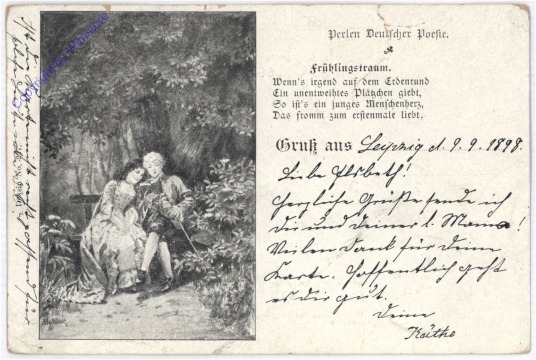 Perlen Deutscher Poesie.
Frühlingstraum.
Wenn's irgend auf dem Erdenrund
Ein unentweihtes Plätzchen giebt,
So ist's ein junges Menschenherz,
Das fromm zum erstenmale liebt,
Gruß aus Leipzig d. 9.9.1898.
Liebe Elsbeth!
Herzliche Grüße sende ich
dir und deiner l. Mama!
Vielen Dank für deine
Karte. Hoffentlich geht
es dir gut.
Deine
Käthe